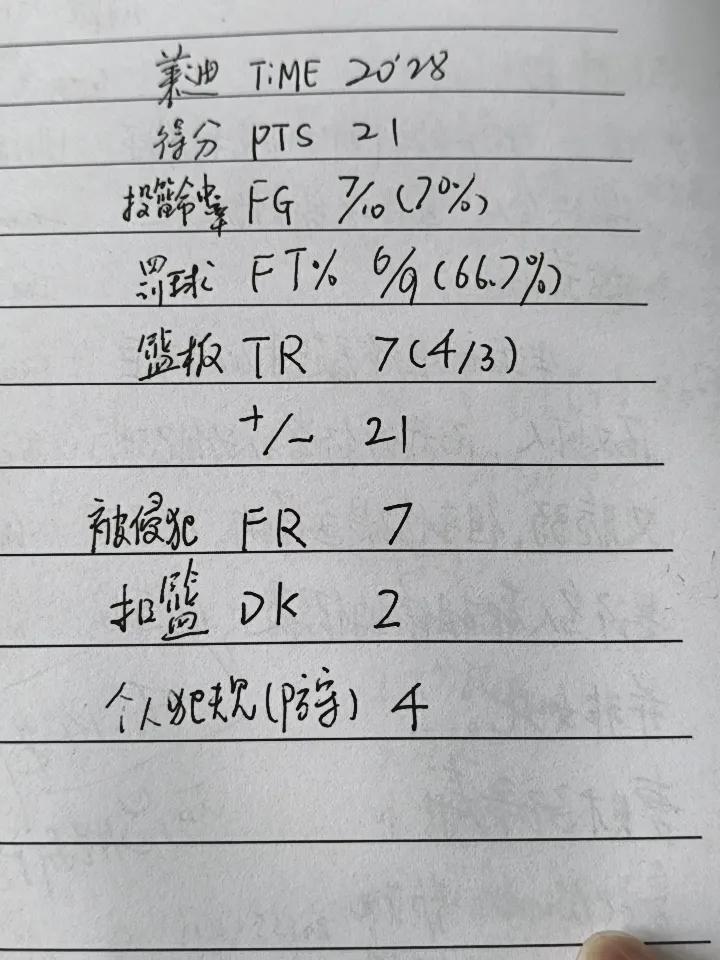 莱迪 TiME 20'28
得分 PTS 21
投篮命中率 FG 7/10(70%)
罚球 FT% 6/9(66.7%)
篮板 TR 7(4/3)
+/- 21
被侵犯 FR 7
扣篮 DK 2
个人犯规(防守) 4